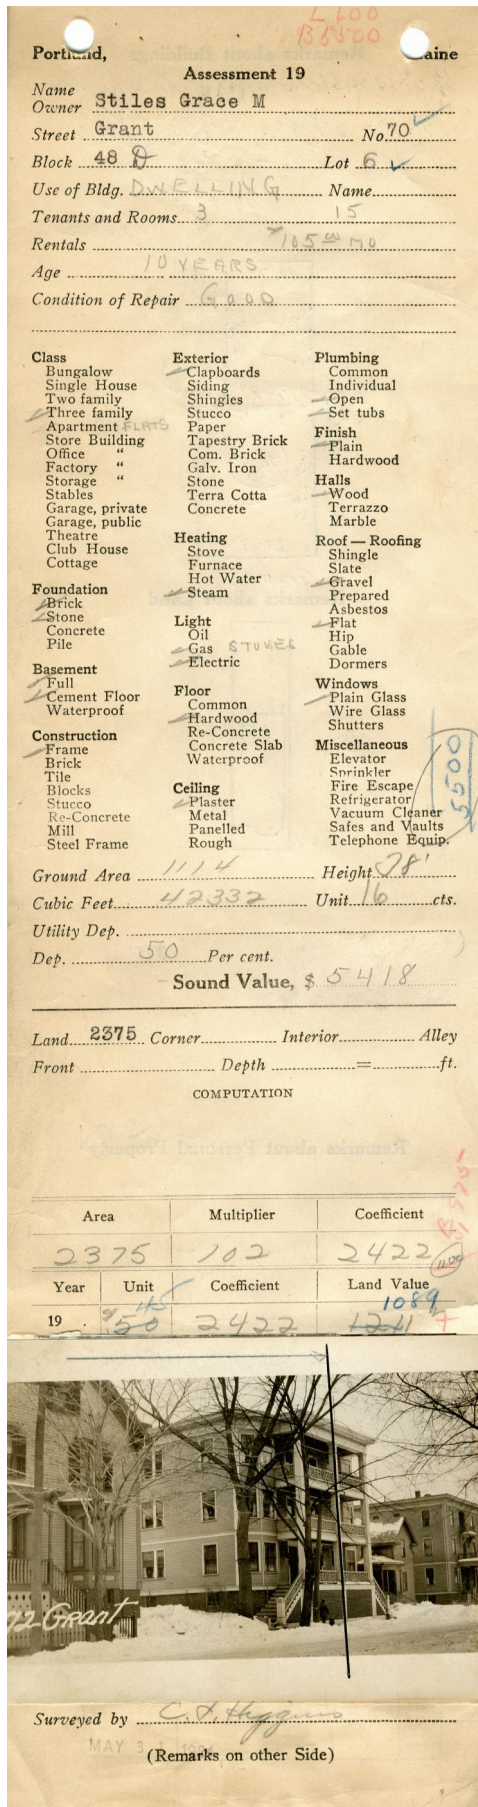 L 600
B 5500
Portland, Maine
Assessment 19
Name
Owner Stiles Grace M
Street Grant No. 70
Block 48 D Lot 6
Use of Bldg. DWELLING Name
Tenants and Rooms 3 15
Rentals $105.00 MO
Age 10 YEARS
Condition of Repair GOOD
Class
Bungalow
Single House
Two family
Three family
Apartment FLATS
Store Building
Office "
Factory "
Storage "
Stables
Garage, private
Garage, public
Theatre
Club House
Cottage
Foundation
Brick
Stone
Concrete
Pile
Basement
Full
Cement Floor
Waterproof
Construction
Frame
Brick
Tile
Blocks
Stucco
Re-Concrete
Mill
Steel Frame
Exterior
Clapboards
Siding
Shingles
Stucco
Paper
Tapestry Brick
Com. Brick
Galv. Iron
Stone
Terra Cotta
Concrete
Heating
Stove
Furnace
Hot Water
Steam
Light
Oil
Gas STOVES
Electric
Floor
Common
Hardwood
Re-Concrete
Concrete Slab
Waterproof
Ceiling
Plaster
Metal
Panelled
Rough
Plumbing
Common
Individual
Open
Set tubs
Finish
Plain
Hardwood
Halls
Wood
Terrazzo
Marble
Roof — Roofing
Shingle
Slate
Gravel
Prepared
Asbestos
Flat
Hip
Gable
Dormers
Windows
Plain Glass
Wire Glass
Shutters
Miscellaneous
Elevator
Sprinkler
Fire Escape
Refrigerator
Vacuum Cleaner
Safes and Vaults
Telephone Equip.
5500
Ground Area 1114 Height 38'
Cubic Feet 42332 Unit 16 cts.
Utility Dep.
Dep. 50 Per cent.
Sound Value, $ 5418
Land 2375 Corner Interior Alley
Front Depth = ft.
COMPUTATION
Remarks about Personal Property
Area Multiplier Coefficient
2375 102 2422
Year Unit Coefficient Land Value
45 1089
19 . $50 2422 1211
72 Grant
Surveyed by C. F. Higgins
MAY 3
(Remarks on other Side)